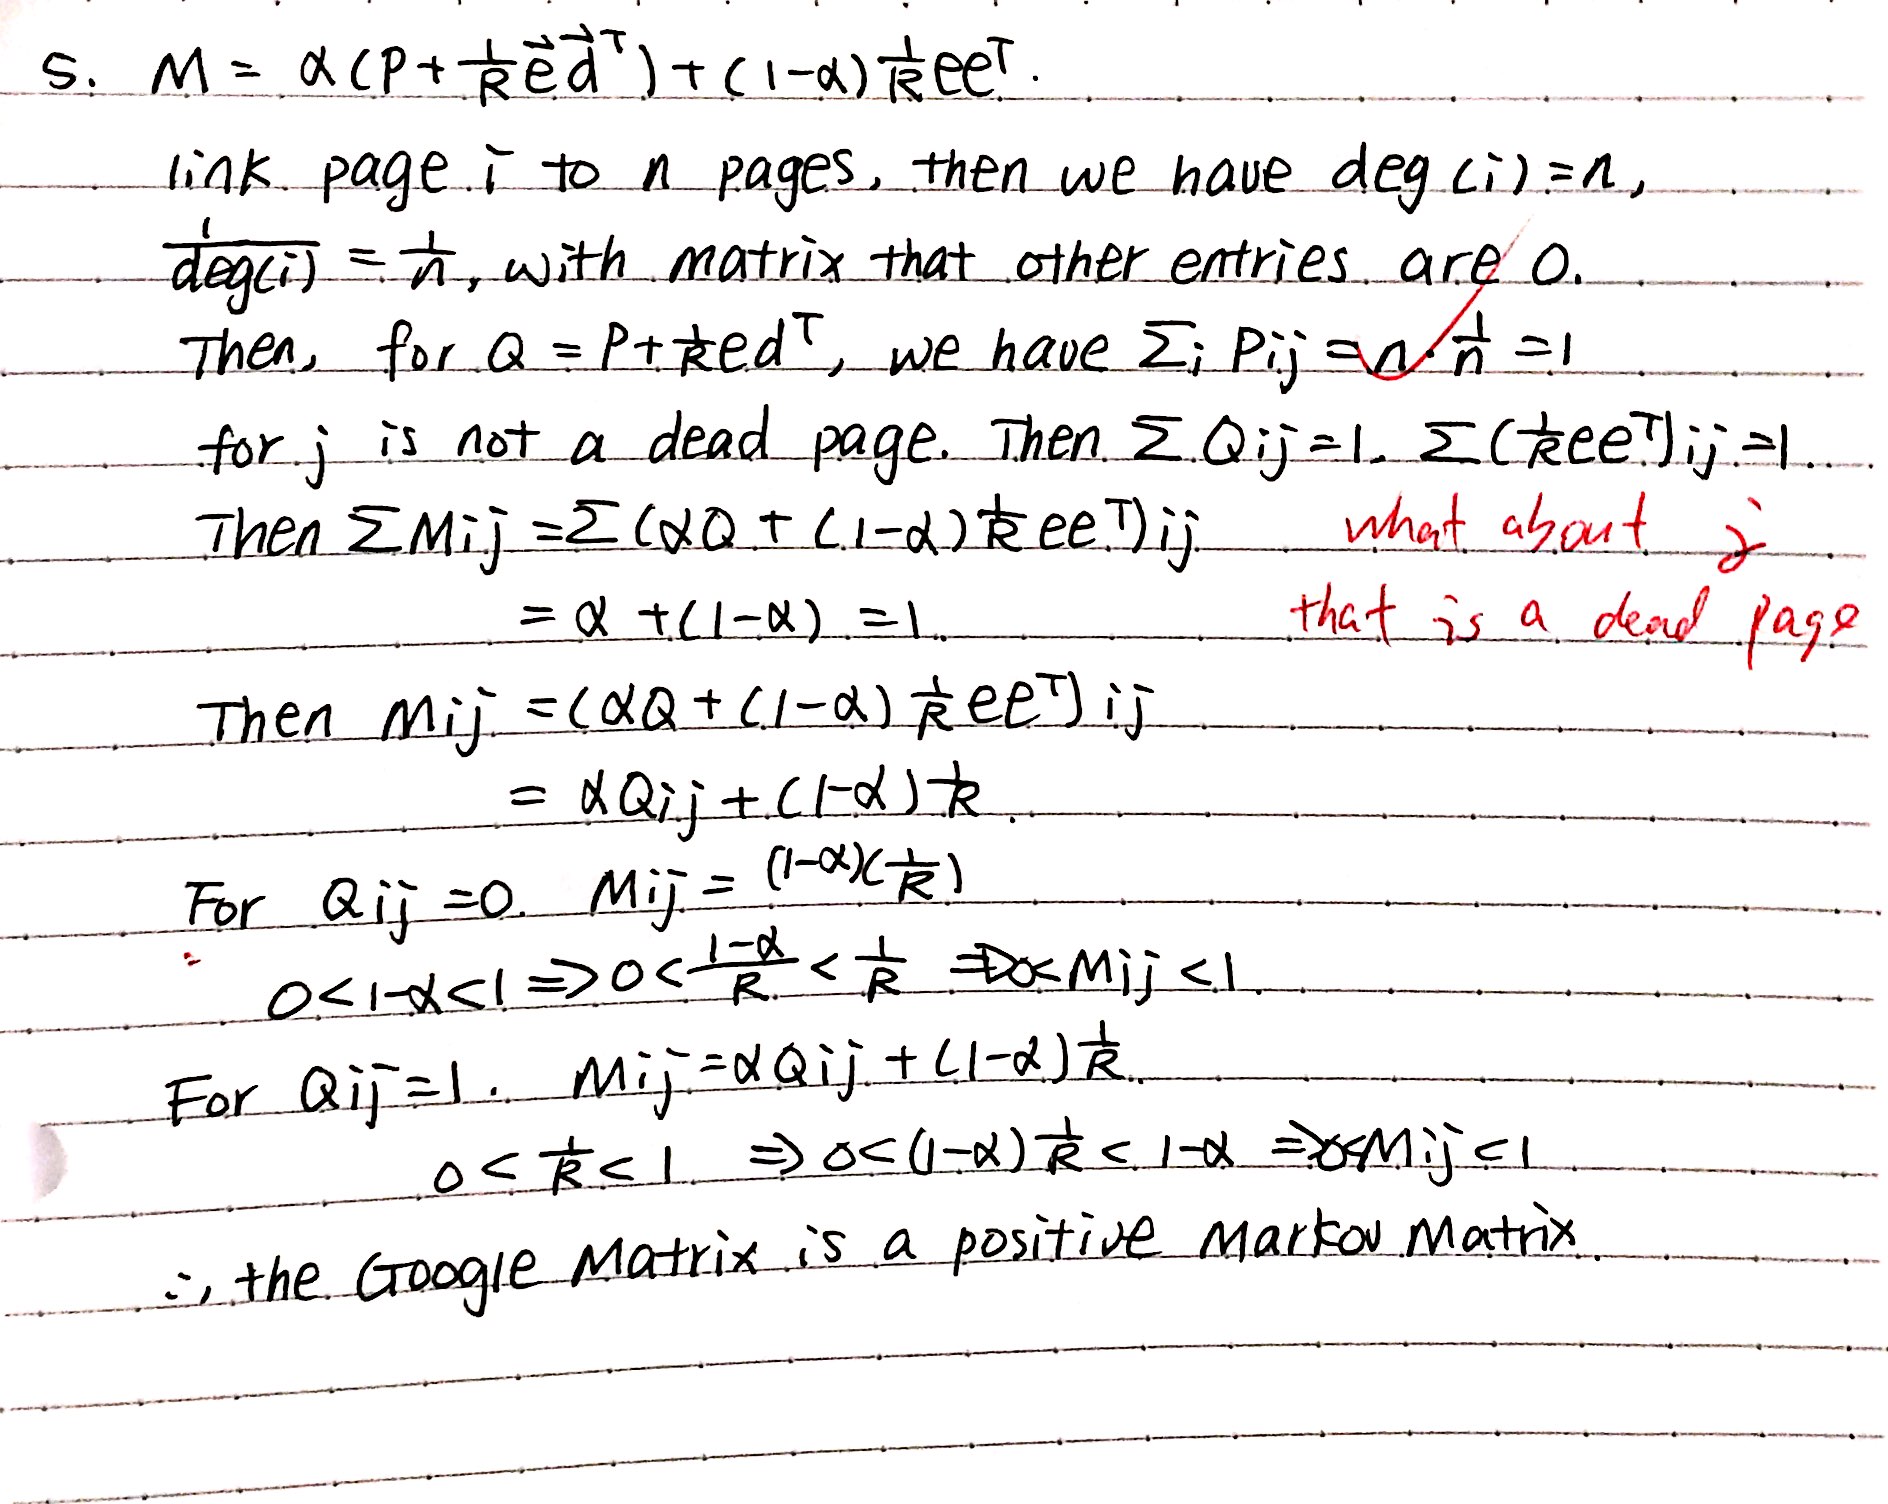 5. M = α(P + 1/R e⃗ d⃗ᵀ) + (1-α) 1/R eeᵀ.
link page i to n pages, then we have deg(i) = n,
1/deg(i) = 1/n, with matrix that other entries are 0.
Then, for Q = P + 1/R edᵀ, we have Σi Pij = n · 1/n = 1
for j is not a dead page. Then Σ Qij = 1. Σ(1/R eeᵀ)ij = 1.
Then Σ Mij = Σ(αQ + (1-α) 1/R eeᵀ)ij
what about j
= α + (1-α) = 1.
that is a dead page
Then Mij = (αQ + (1-α) 1/R eeᵀ)ij
= αQij + (1-α) 1/R.
For Qij = 0. Mij = (1-α)(1/R)
0 < 1-α < 1 ⇒ 0 < (1-α)/R < 1/R ⇒ 0 < Mij < 1.
For Qij = 1. Mij = αQij + (1-α) 1/R.
0 < 1/R < 1 ⇒ 0 < (1-α) 1/R < 1-α ⇒ 0 < Mij < 1
∴, the Google Matrix is a positive Markov Matrix.